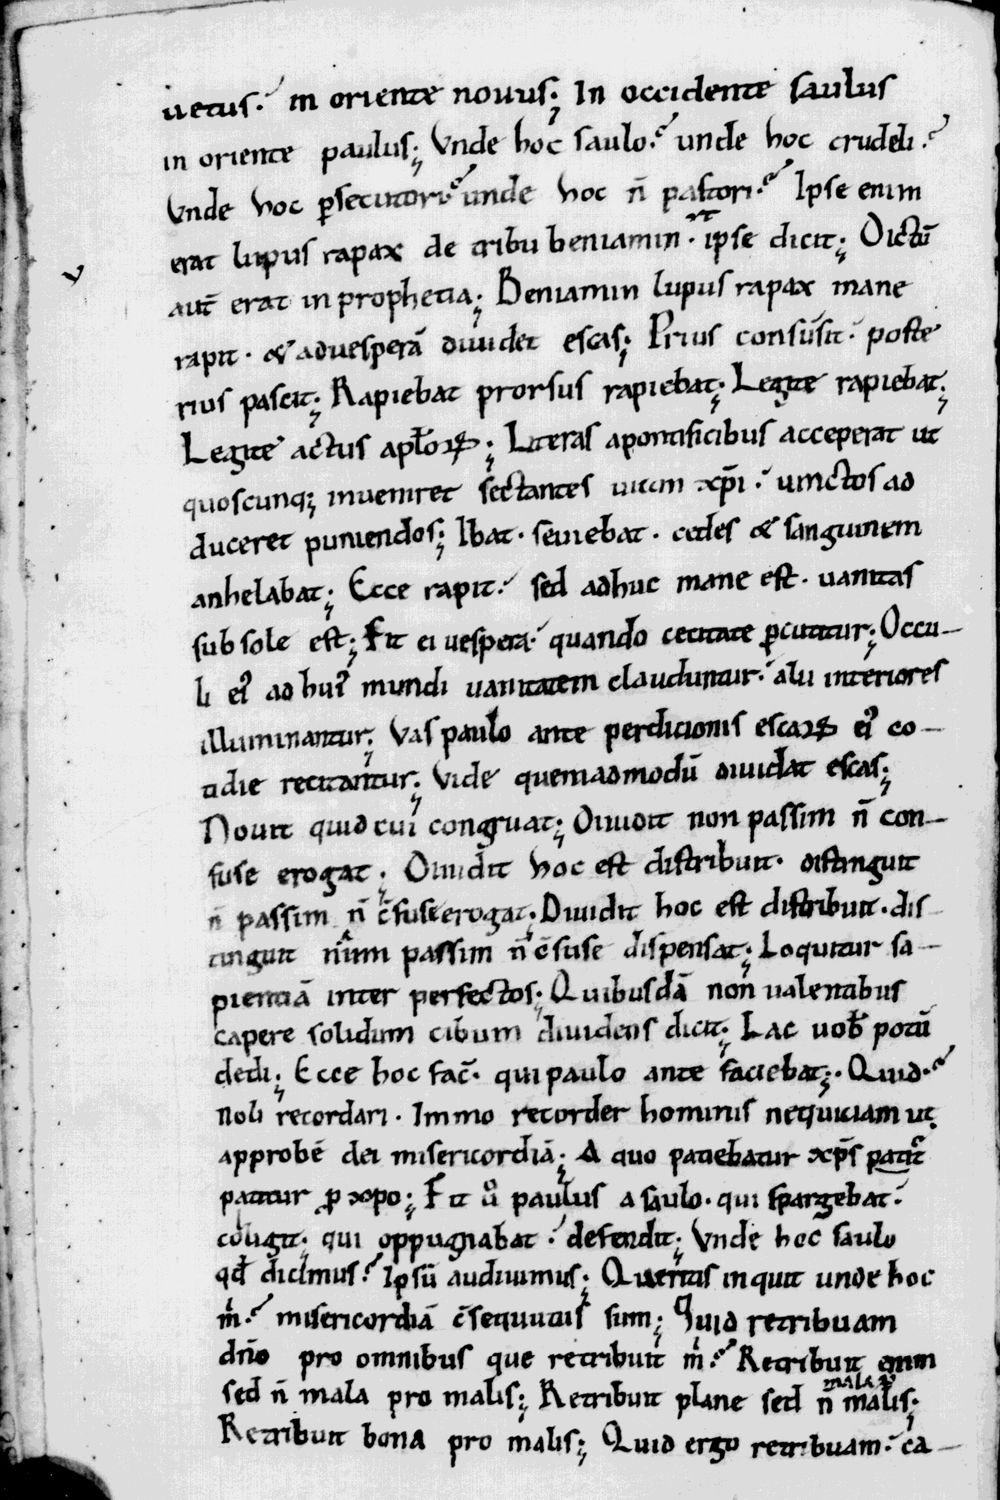 uetus. in oriente nouus; In occidente saulus
in oriente paulus; Vnde hoc saulo? unde hoc crudeli?
Vnde hoc p̱secutori? unde hoc n̄ pastori? Ipse enim
erat lupus rapax de tribu beniamin. ut ipse dicit; Dictū
aut̄ erat in prophetia; Beniamin lupus rapax mane
rapit. & ad uesperā diuidet escas; Prius consūsit. poste
rius pascit; Rapiebat prorsus rapiebat; Legite rapiebat;
Legite actus apl̄oꝝ; Literas a pontificibus acceperat ut
quoscunq; inueniret sectantes uiam xp̄i. uinctos ad
duceret puniendos; Ibat. seuiebat. cedes & sanguinem
anhelabat; Ecce rapit. sed adhuc mane est. uanitas
sub sole est; Fit ei uespera. quando cecitate p̱cutitur; Occu-
li ei᾽ ad hui᾽ mundi uanitatem clauduntur. alii interiores
illuminantur; Vas paulo ante perdicionis escaꝝ ei᾽ co-
tidie recitantur; Vide quemadmodū diuidat escas;
Nouit quid cui congruat; Diuidit non passim n̄ con-
fuse erogat. Diuidit hoc est distribuit. distinguit
n̄ passim n̄ c̄fuse erogat; Diuidit hoc est distribuit. dis-
tinguit passim n̄ c̄fuse dispensat; Loquitur sa-
pientiā inter perfectos; Quibusdā non ualentibus
capere solidum cibum diuidens dicit; Lac uob̄ potū
dedi; Ecce hoc fac̄. qui paulo ante faciebat; Quid?
Noli recordari. Immo recorder hominis nequiciam ut
approbē dei misericordiā; A quo patiebatur xp̄s patit᷑
patitur ꝓ xp̄o; Fit u̾ paulus a saulo. qui spargebat.
colligit; qui oppugnabat. defendit; Vnde hoc saulo
qd̄ dicimus? Ipsū audiuimus; Queritis inquit unde hoc
m̄? misericordiā c̄sequutus sum; Quid retribuam
dn̄o pro omnibus que retribuit m̄? Retribuit enim
sed n̄ mala pro malis; Retribuit plane sed n̄ mala ꝓ malis;
Retribuit bona pro malis; Quid ergo retribuam. ca-